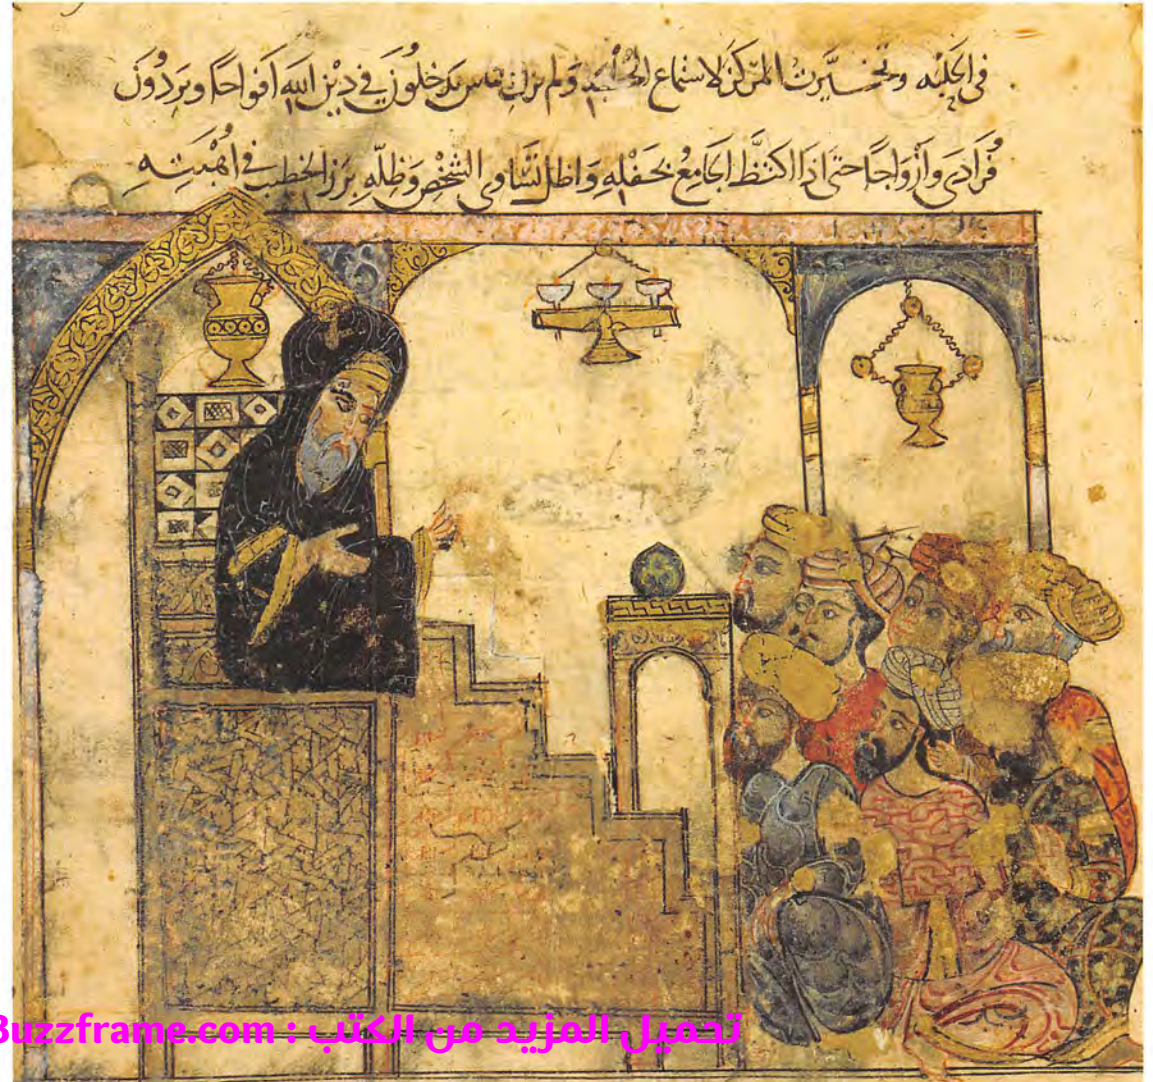 في الحلبه وتخيرت المركز لاستماع الخطبه ولم يزل الناس يدخلون في دِيْن الله أفواجًا ويَردُون
فُرادى وأَزْواجًا حتى اذا اكتظَّ الجامعُ بحَفْلِهِ واظل تَسَاوي الشخْصِ وَظِلّهِ بَرَزَ الخطيب في أُهْبَتِهِ
تحميل المزيد من الكتب : Buzzframe.com